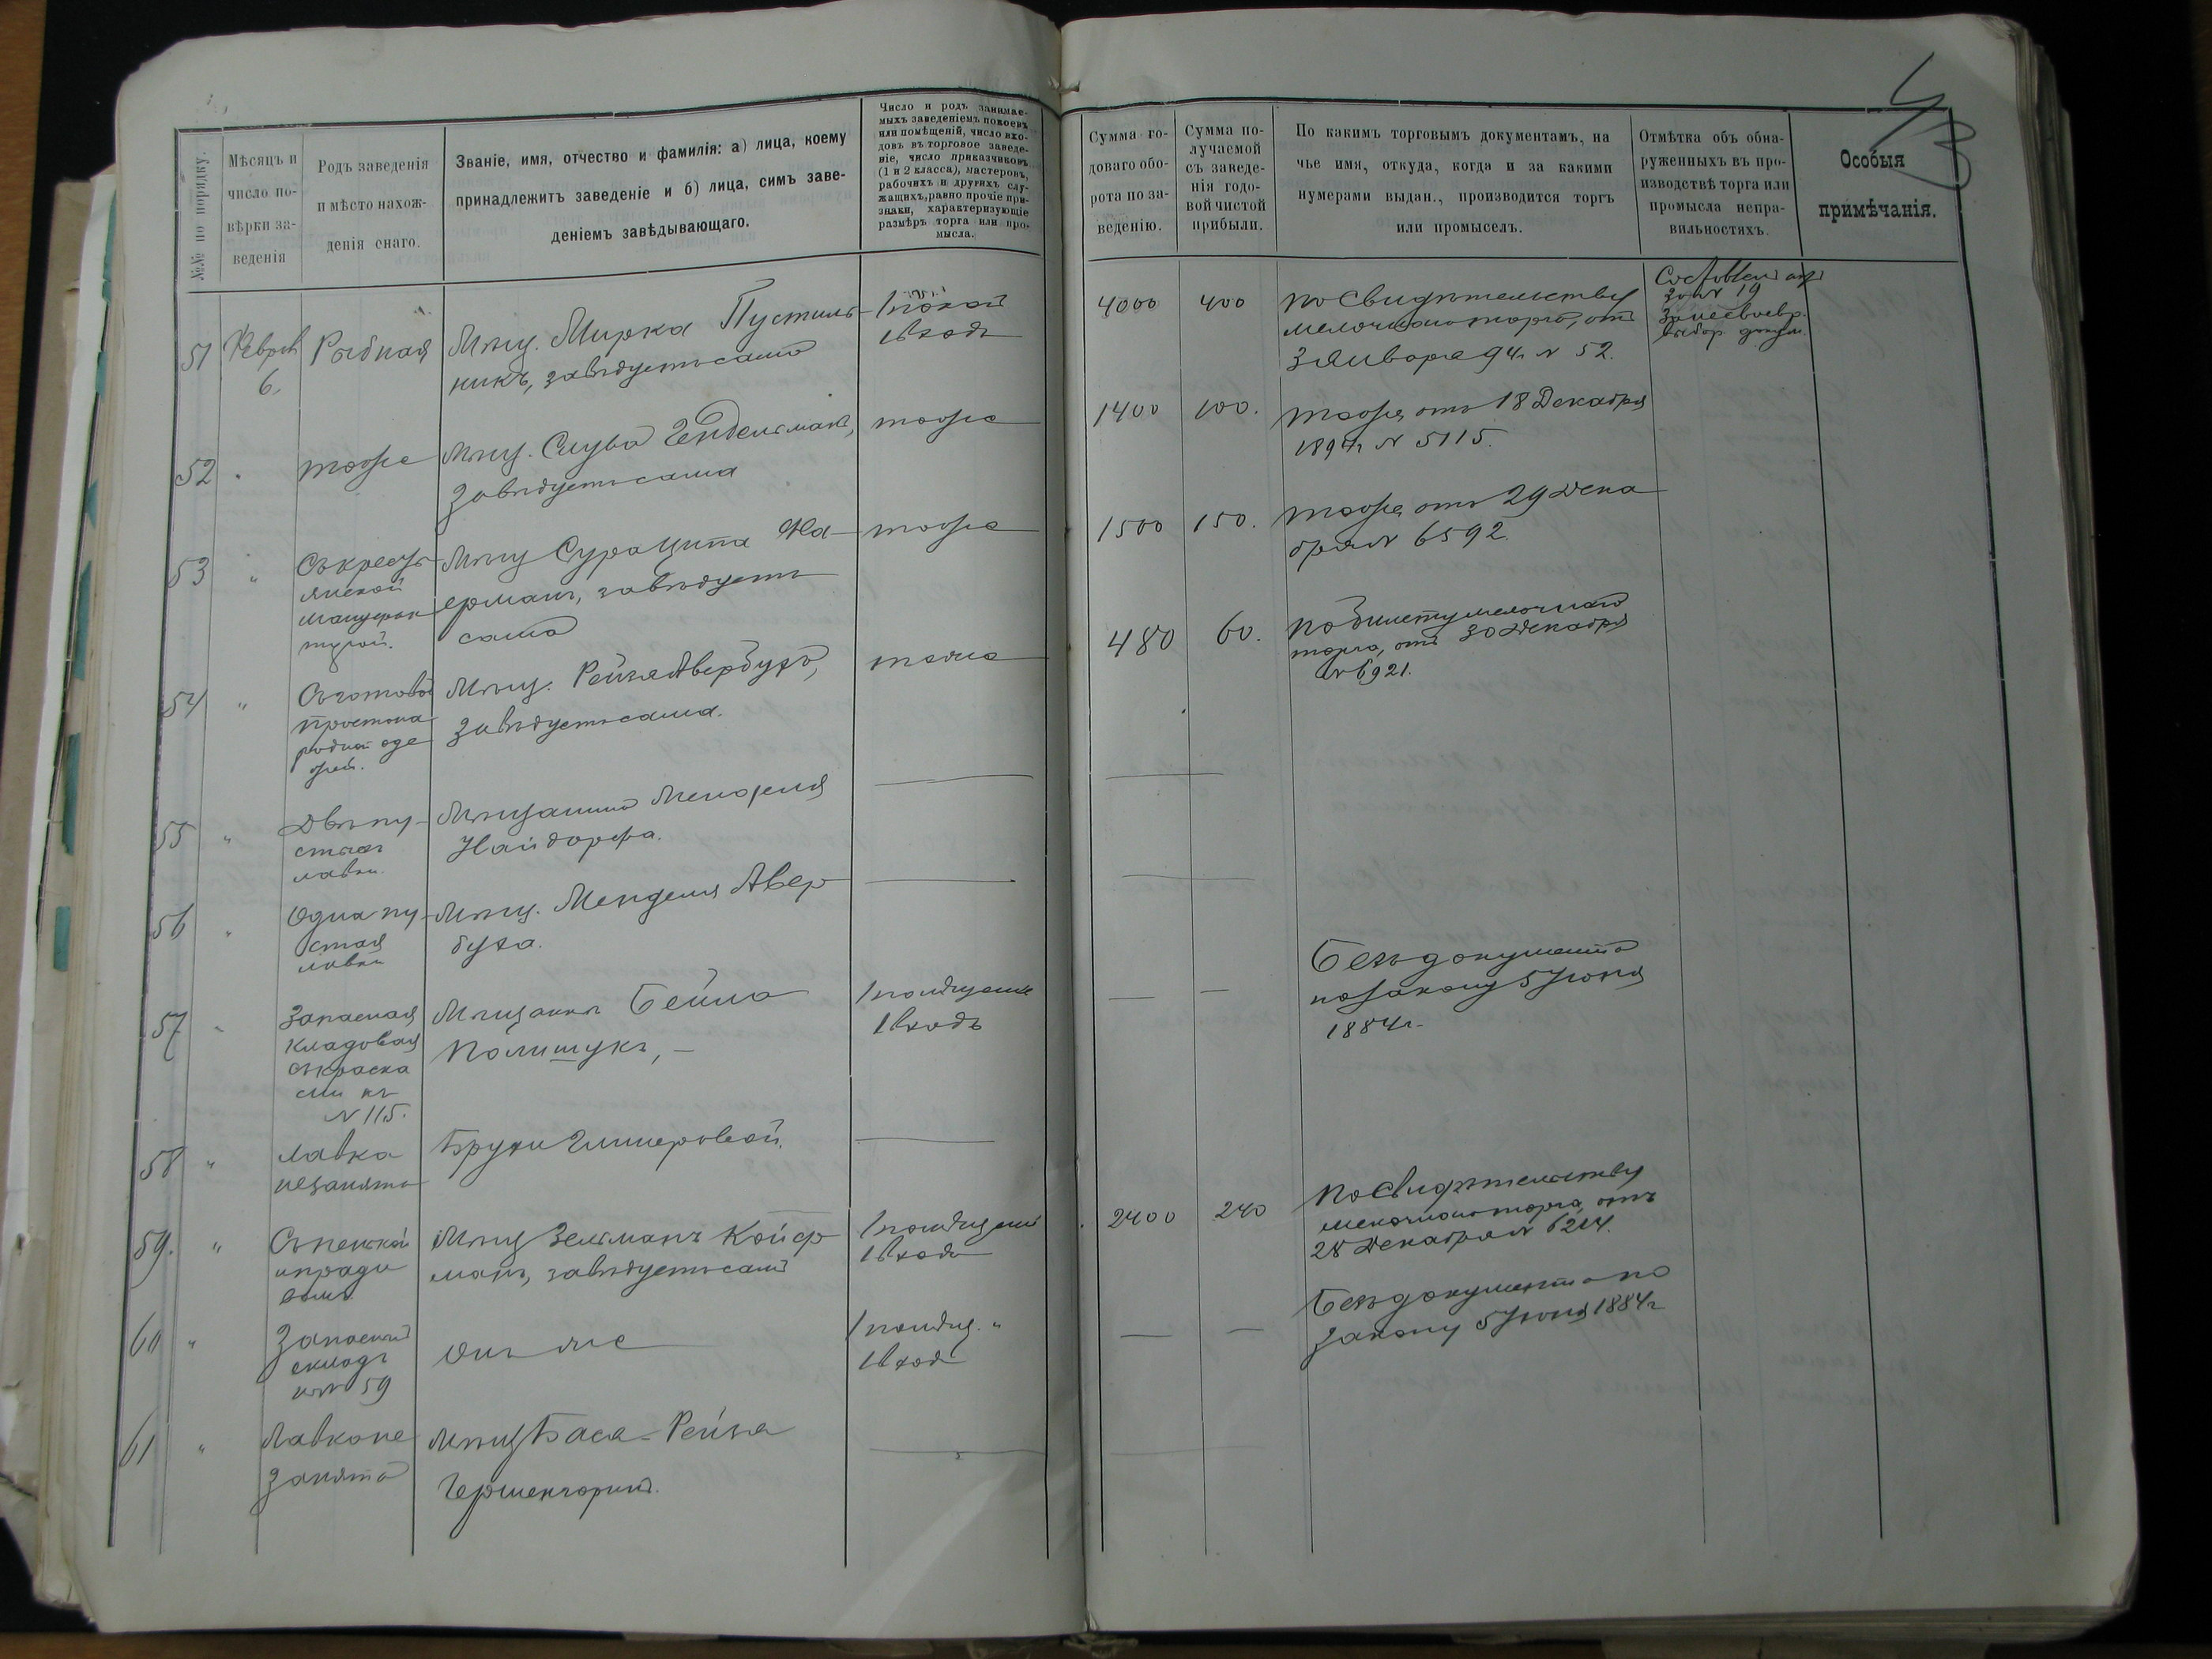 №№ по порядку.
Мѣсяцъ и
число по-
вѣрки за-
веденія
Родъ заведенія
и мѣсто нахож-
денія снаго.
Званіе, имя, отчество и фамилія: а) лица, коему
принадлежитъ заведеніе и б) лица, симъ заве-
деніемъ завѣдывающаго.
Число и родъ занимае-
мыхъ заведеніемъ покоевъ
или помѣщеній, число вхо-
довъ въ торговое заведе-
ніе, число приказчиковъ
(1 и 2 класса), мастеровъ,
рабочихъ и другихъ слу-
жащихъ, равно прочіе при-
знаки, характеризующіе
размѣръ торга или про-
мысла.
Сумма го-
доваго обо-
рота по за-
веденію.
Сумма по-
лучаемой
съ заведе-
нія годо-
вой чистой
прибыли.
По какимъ торговымъ документамъ, на
чье имя, откуда, когда и за какими
нумерами выдан., производится торгъ
или промыселъ.
Отмѣтка объ обна-
руженныхъ въ про-
изводствѣ торга или
промысла непра-
вильностяхъ.
Особыя
примѣчанія.
43
51
Февраль
6.
Рыбная
Мѣщ. Мирка Пустиль-
никъ, завѣдуетъ сама
1 покой
1 входъ
4000
400
По свидѣтельству
мелочнаго торга, отъ
3 Января 94 г № 52.
за № 19
52
тоже
Мѣщ. Слува Гендельманъ,
Завѣдуетъ сама
тоже
1400
100.
тоже отъ 18 Декабря
1894 г № 5115.
53
"
Съ кресть-
янской
мануфак
турой.
Мѣщ Сура Ципа
ерманъ, завѣдуетъ
сама
тоже
1500
150.
тоже отъ 29 Дека
бря № 6592.
54
"
Съ готовой
простона
родной оде
жей.
Мѣщ. Рейзя Авербухъ,
завѣдуетъ сама.
тоже
480
60.
по билету мелочнаго
торга, отъ 30 Декабря
№ 6921.
55
"
Двѣ пу-
стыхъ
лавки.
Мѣщанина Менделя
Найдорфа.
56
"
Одна пу-
стая
лавка
Мѣщ. Менделя Авер
буха.
57
"
Запасная
кладовая
съ краска
ми къ
№ 115.
Мѣщанки Бейла
Полищукъ, —
1 помѣщеніе
1 входъ
—
—
Безъ документа
по закону 5 Іюня
1884 г.
58
"
Лавка
незанята
Брухи
59.
"
Съ пенькой
Мѣщ Зельманъ Койф
манъ, завѣдуетъ самъ
1 помѣщеніе
1 входъ
2400
240
По свидѣтельству
мелочнаго торга, отъ
28 Декабря № 6214.
60
"
Запасный
складъ
къ № 59
Онъ же
1 помѣщ. "
1 входъ
—
—
Безъ документа по
закону 5 Іюня 1884 г
61
"
Лавка не
занята
Мѣщ Баса-Рейза
Гершенгоринъ.